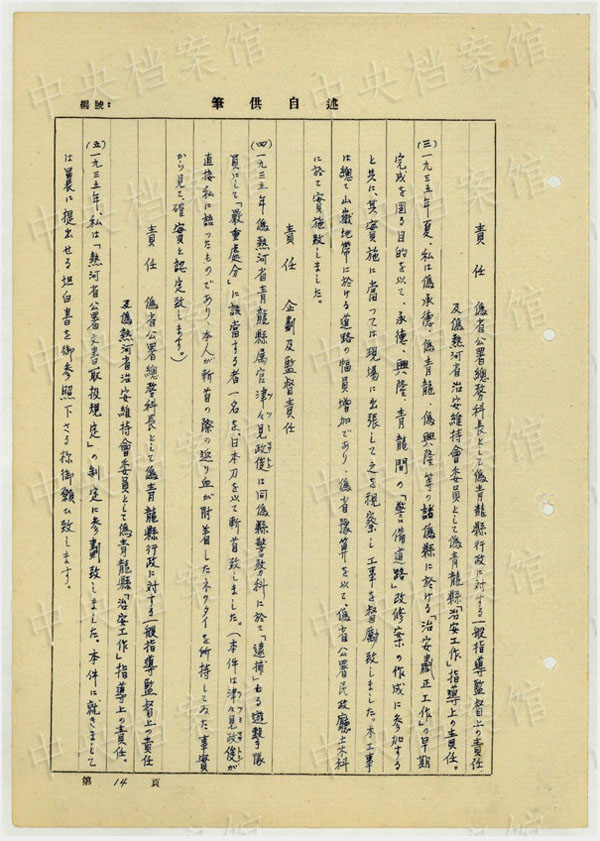 編號:
筆供自述
責任 偽省公署總務科長として偽青龍縣行政に対する一般指導監督上の責任
及偽熱河省治安維持會委員として偽青龍縣「治安工作」指導上の責任。
(三)一九三五年夏、私は偽承德、偽青龍、偽興隆等の諸偽縣に於ける「治安肅正工作」の早期
完成を図る目的を以て、承德、興隆、青龍間の「警備道路」改修案の作成に参加する
と共に、其実施に當つては現場に出張して之を視察し工事を督勵致しました。本工事
は總て山嶽地帶に於ける道路の幅員增加であり、偽省豫算を以て、偽省公署民政廳土木科
に於て実施致しました。
責任 企劃及監督責任
(四)一九三五年偽熱河省青龍縣属官津々見政俊は同偽縣警務科に於て「逮捕」せる遊撃隊
員にして「嚴重處分」に該當する者一名を、日本刀を以て斬首致しました。(本件は津々見政俊が
直接私に語つたものであり、本人が斬首の際の返り血が附着したネクタイを所持してゐた事実
から見て、確実と認定致します。)
責任 偽省公署總務科長として偽青龍縣行政に対する一般指導監督上の責任
及偽熱河省治安維持會委員として偽青龍縣「治安工作」指導上の責任。
(五)一九三五年、私は「熱河省公署文書取扱規定」の制定に参劃致しました。本件に就きまして
は曩に提出せる坦白書を御参照下さる様御願ひ致します。
第 14 頁
中央档案馆